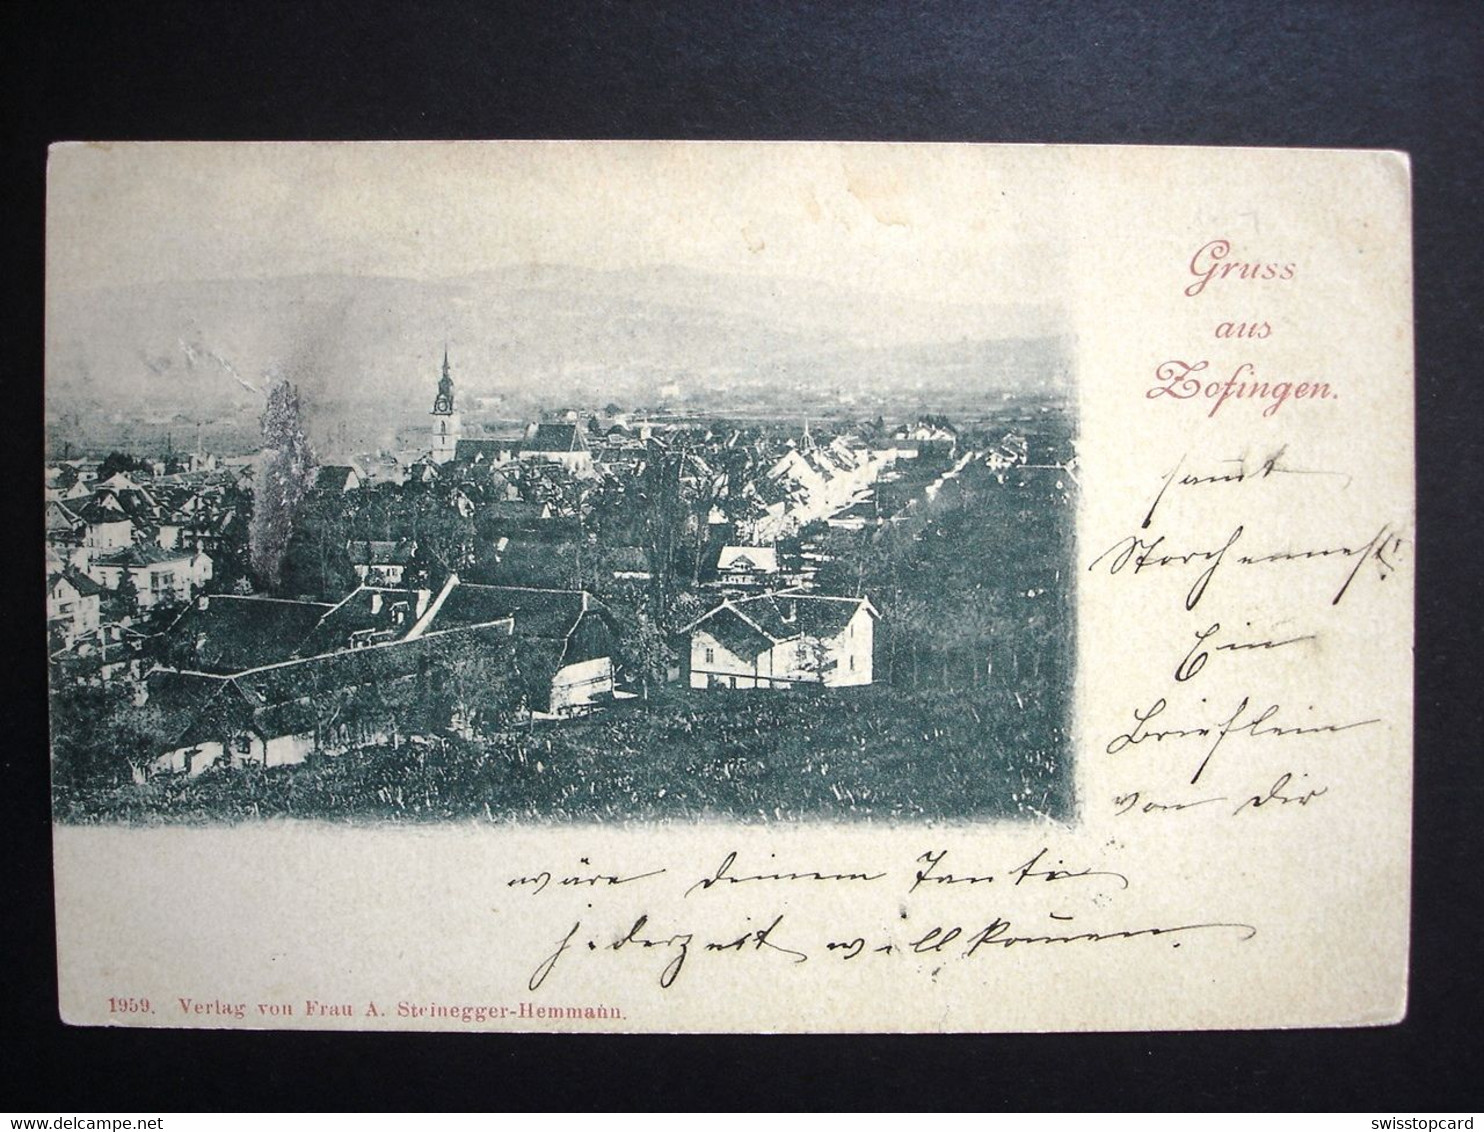 Gruss
aus
Zofingen.
samt
Storchennest!
Ein
Brieflein
von Dir
wäre deinem Tanti
jederzeit willkommen.
1959. Verlag von Frau A. Steinegger-Hemmann.
delcampe.net
swisstopcard